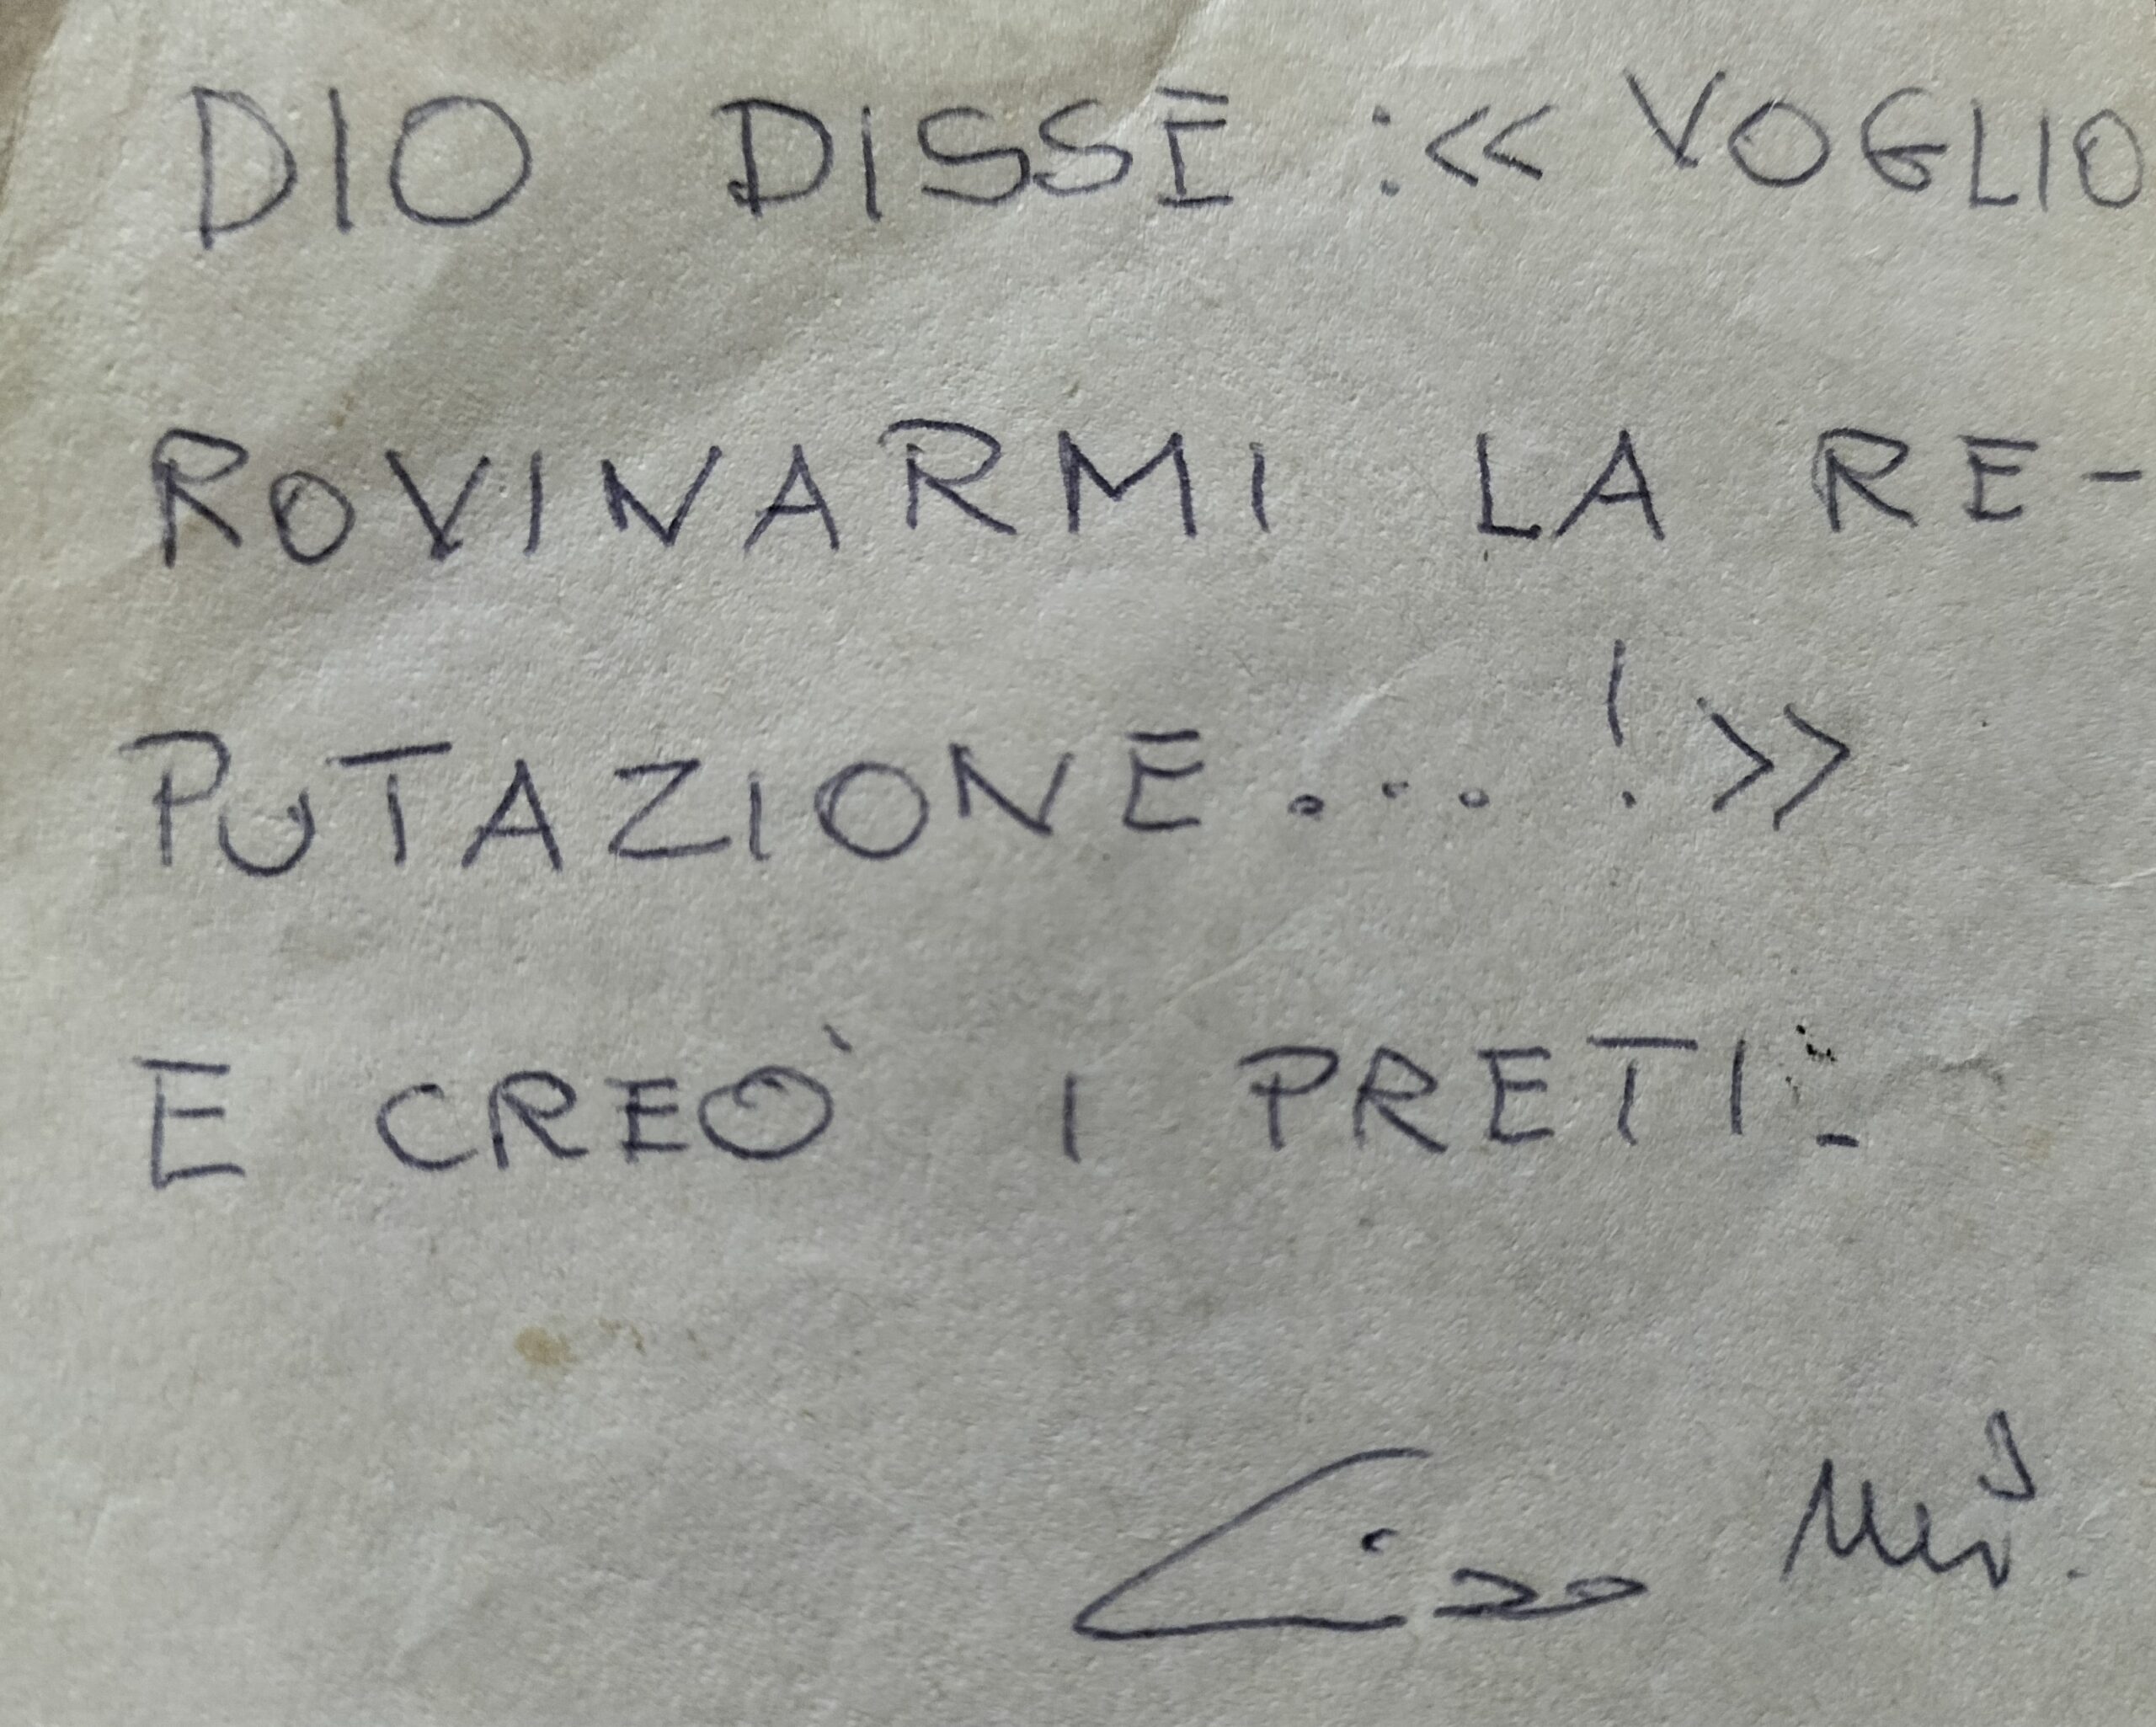 DIO DISSE :<< VOGLIO
ROVINARMI LA RE-
PUTAZIONE...!>>
E CREÒ I PRETI.